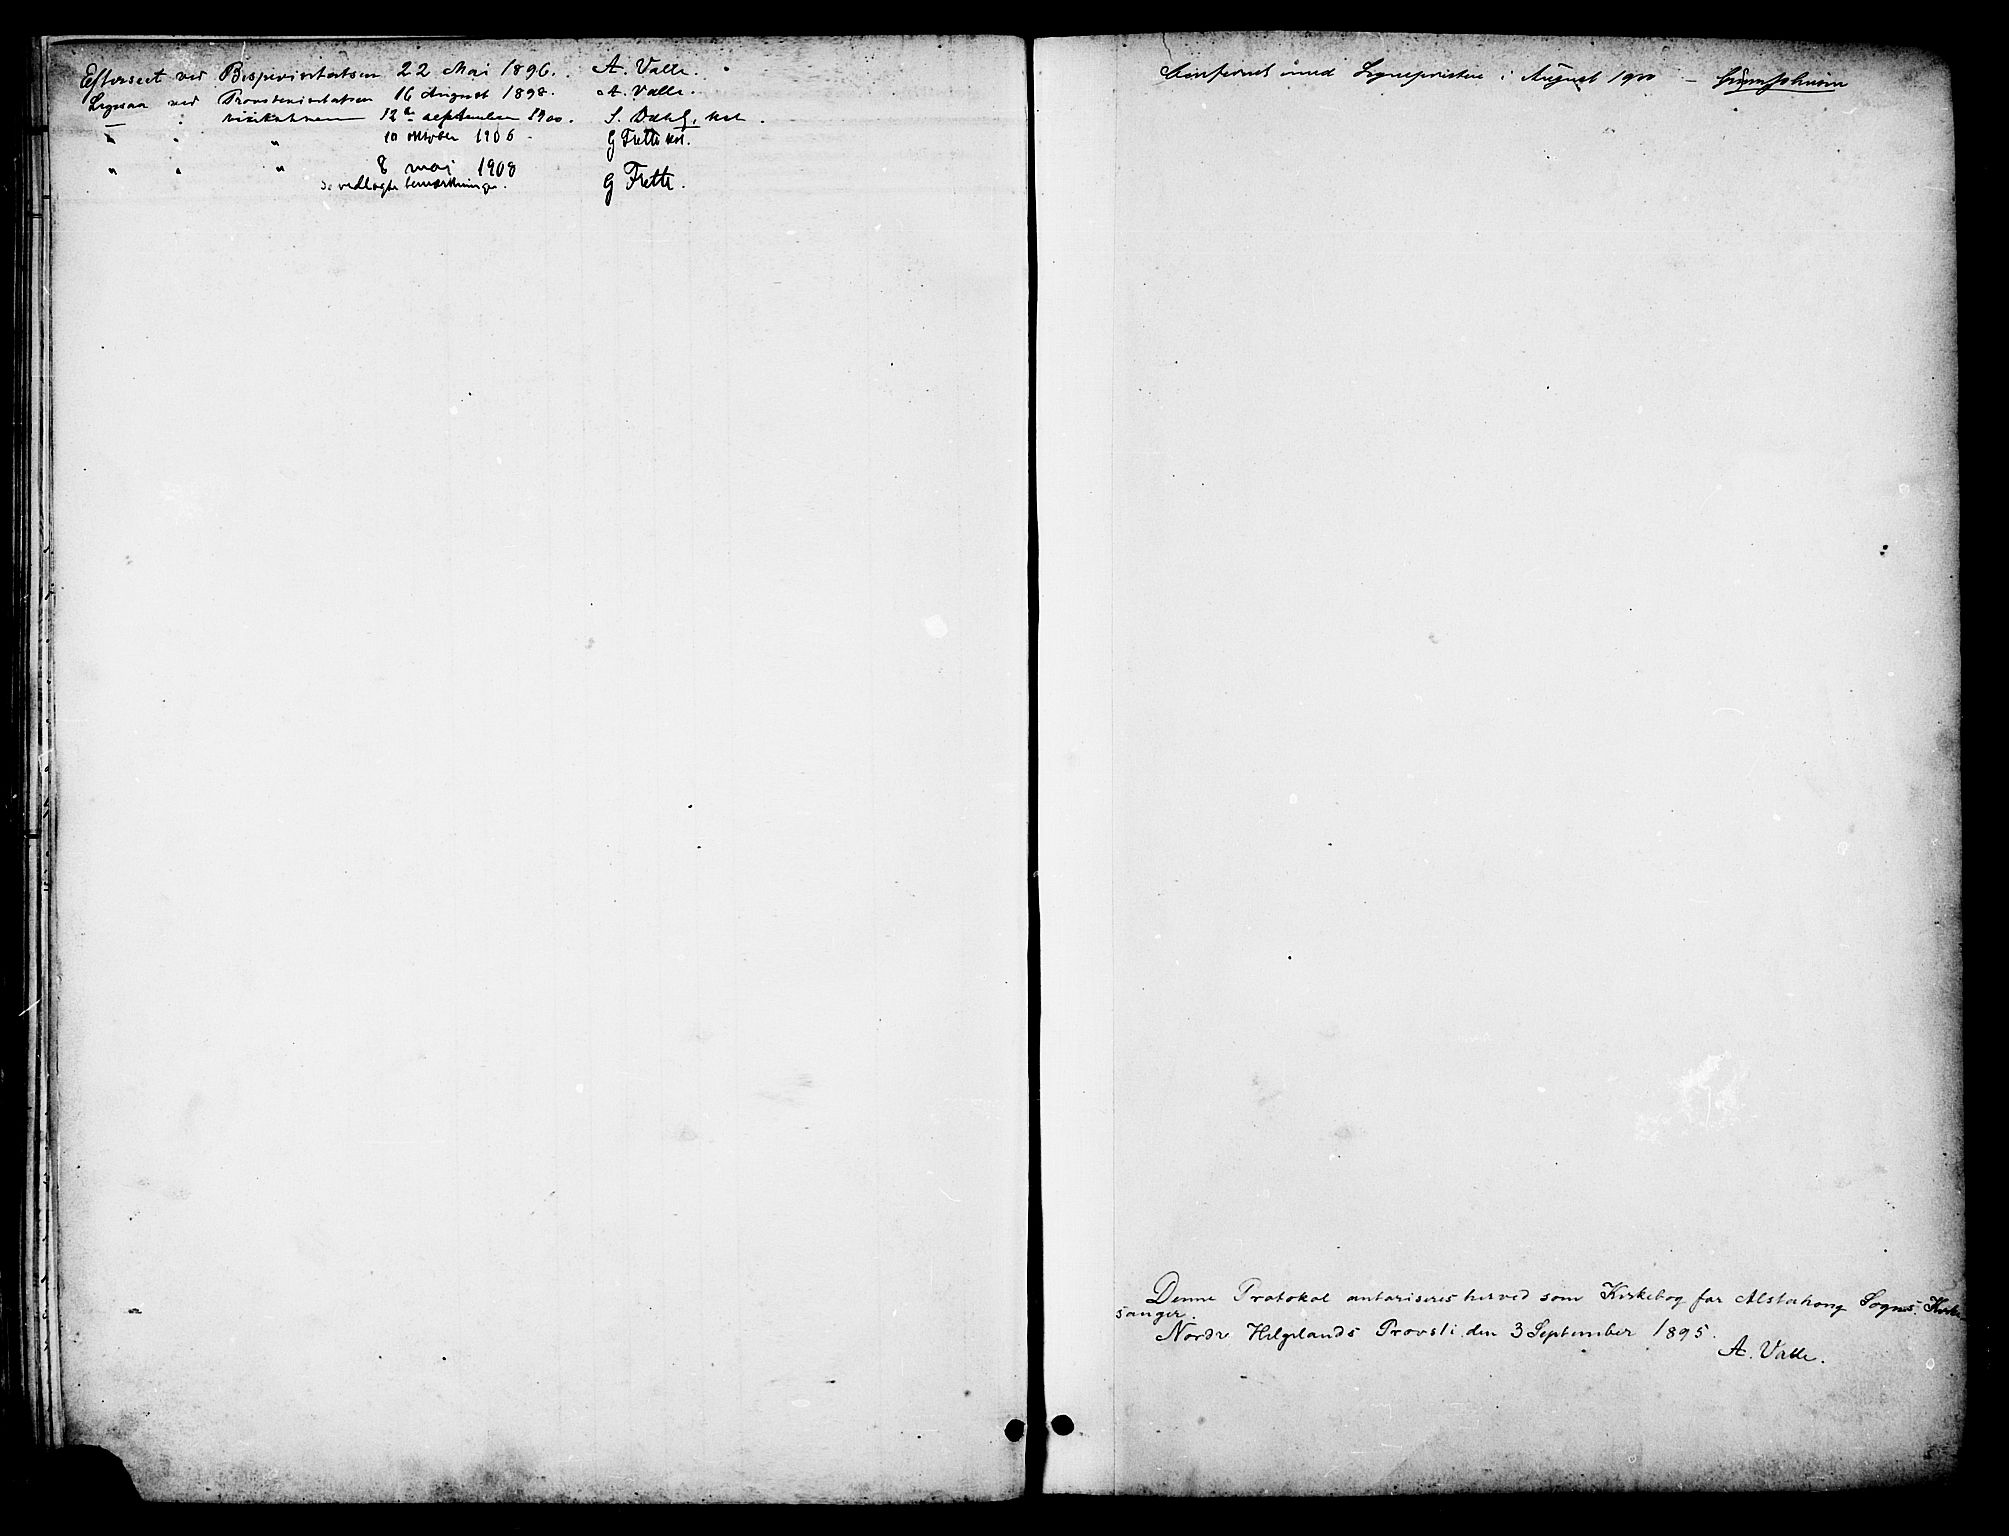 Efterseet ved Bispevisitatsen 22 Mai 1896. A. Valle.
Ligesaa ved Provstevisitatsen 16 August 1898. A. Valle.
— " visitatsen 12te september 1900. S. Dahl, kst.
" " " 10 oktober 1906. G Fette kst.
" " " 8 mai 1908
Se vedlagte bemærkninger. G Fette.
Konfereret med Sognepresten i August 1900 —
Denne Protokol autoriseres herved som Kirkebog for Alstahong Sogns Kirke-
sanger.
Nordre Helgelands Provsti den 3 September 1895.
A. Valle.